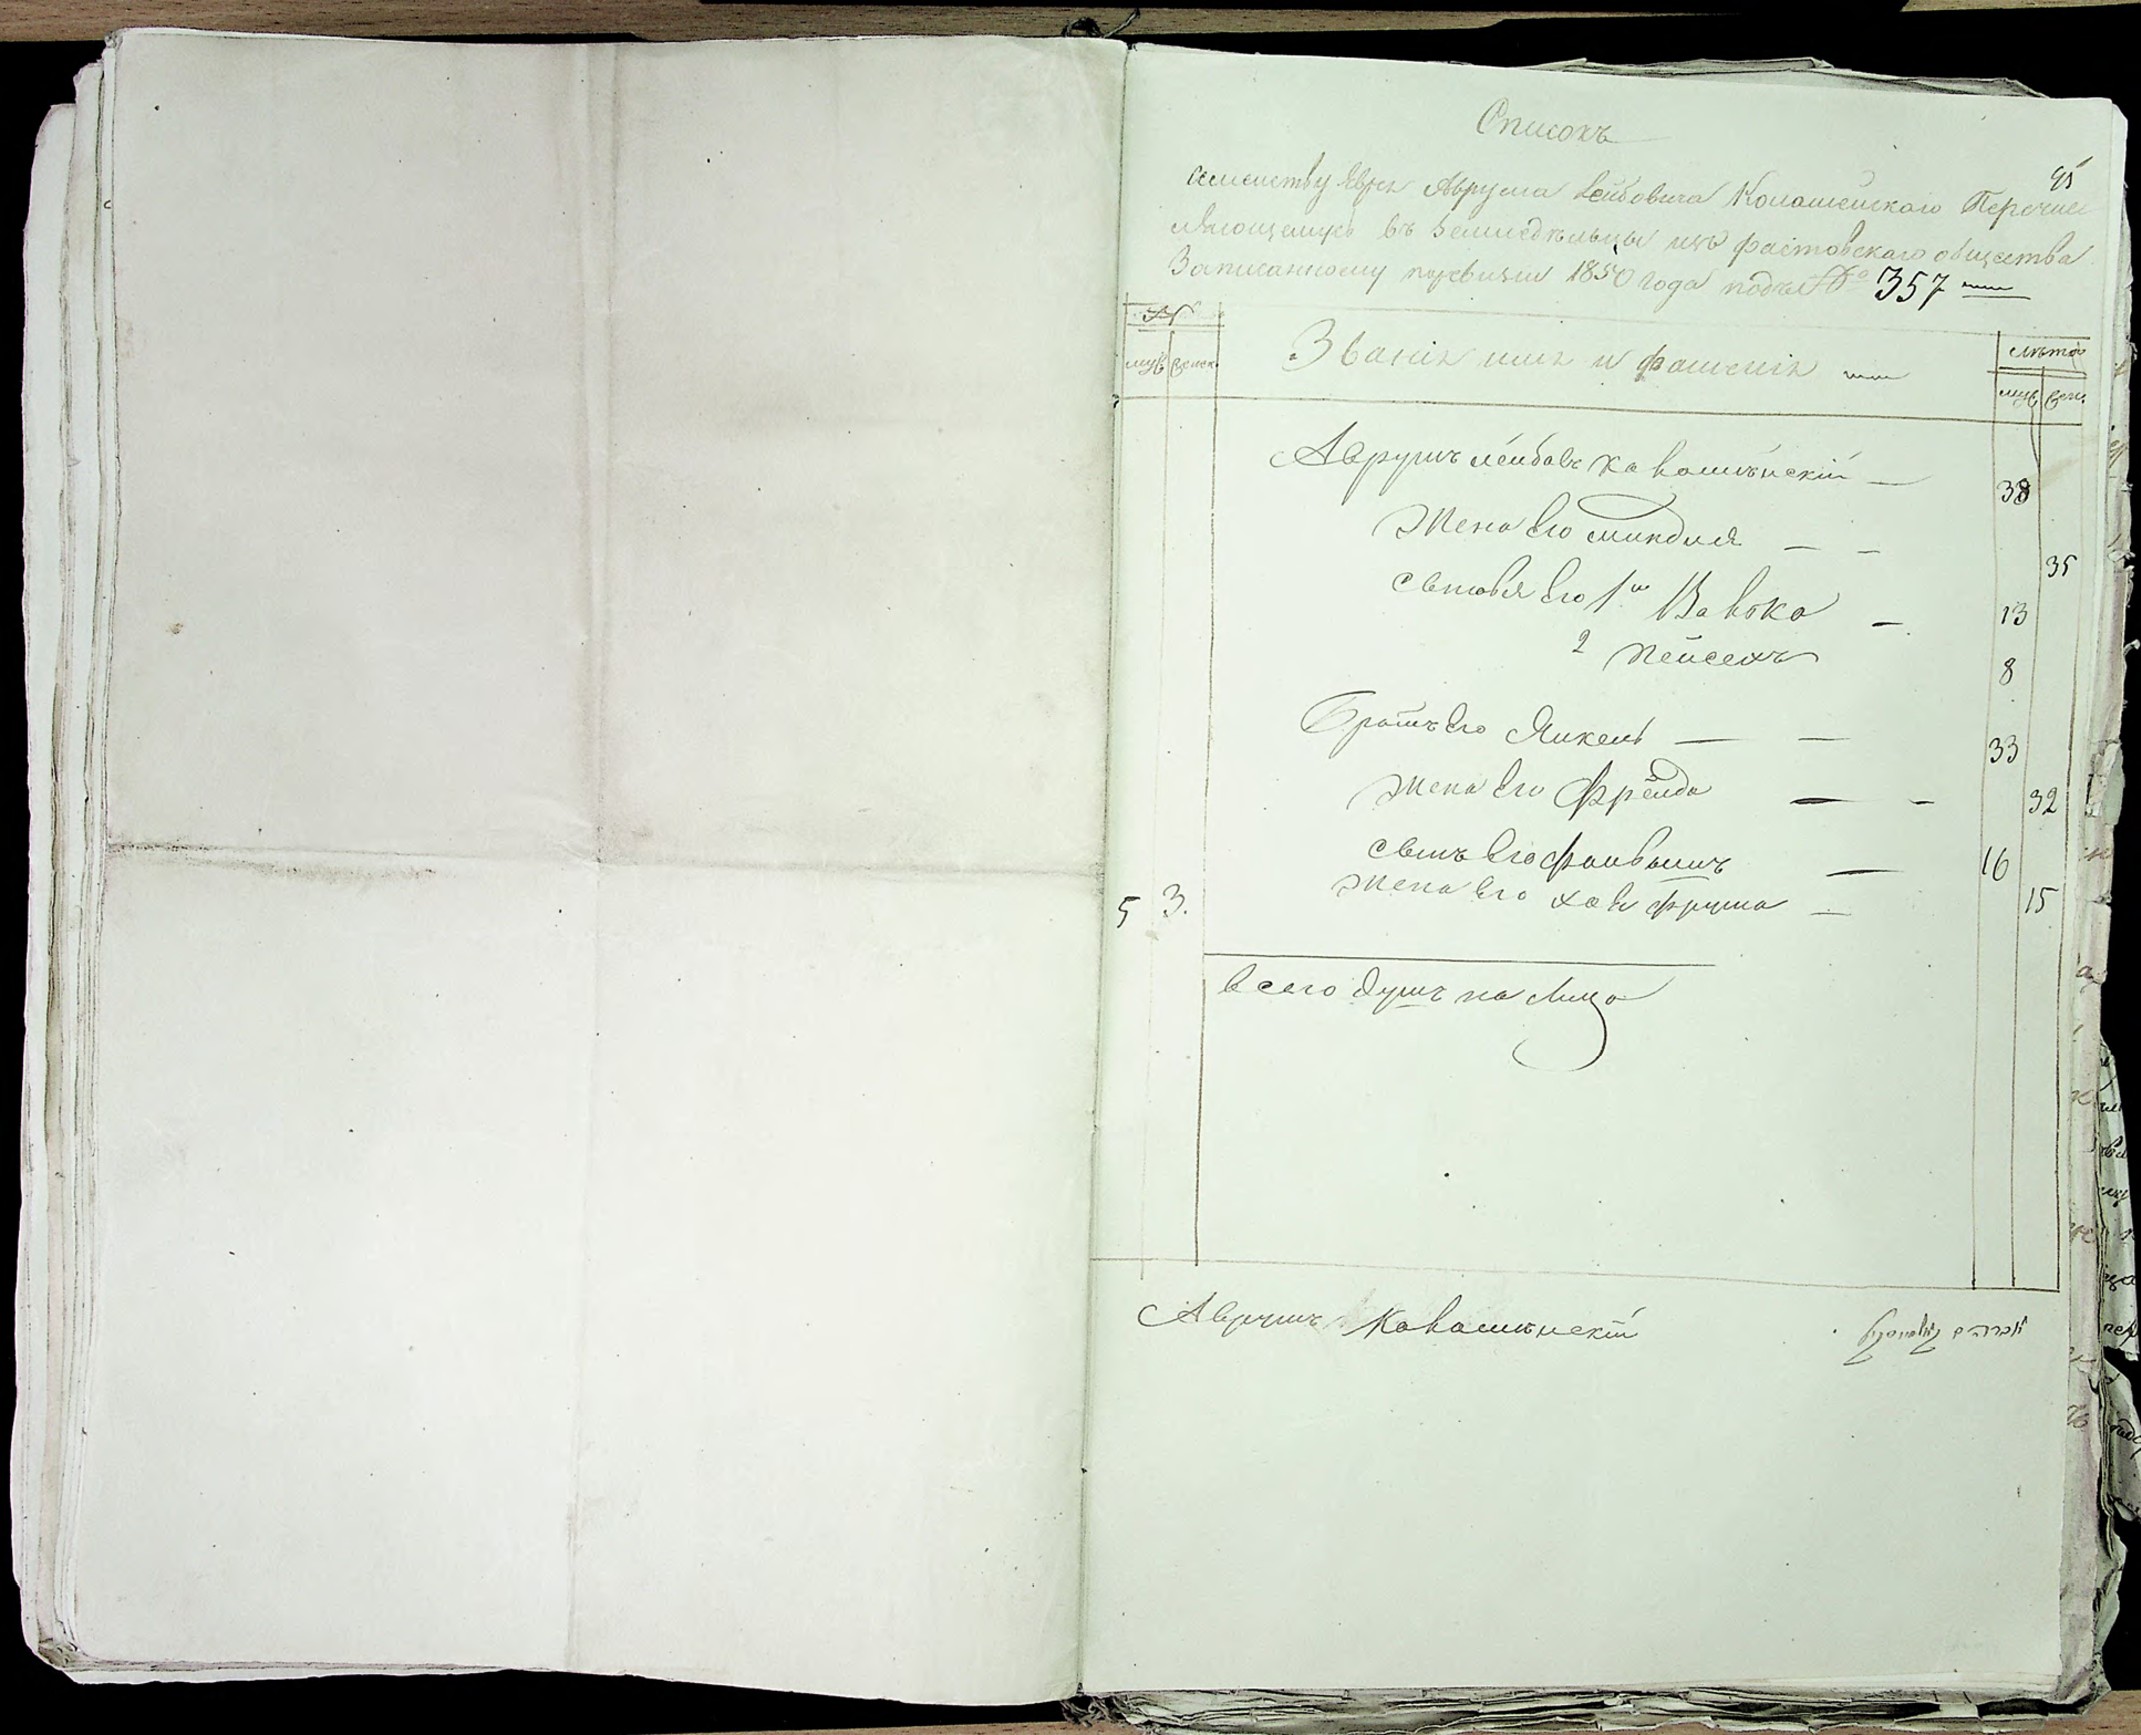 Списокъ
95
Семейству Еврея Аврума Лейбовича Ковашенскаго Перечис
ляющемуся въ Земледѣльцы изъ фастовскаго общества
Записанному поревизіи 1850 года подъ № 357
№
муж женск
Званіе имя и фамилія
лѣта
муж жен
Аврумъ лейбовъ Ковашѣнскій — 38
Жена Его миндля — — 35
Сыновья Его 1й Вавка — 13
2 пейсехъ 8
Братъ Его Янкель — — 33
Жена Его Фрейда — — 32
Сынъ Его Файвышъ — 16
5 3. Жена Его хая фрума — 15
всего душъ на Лицо
Аврумъ Ковашѣнскій
אברהם